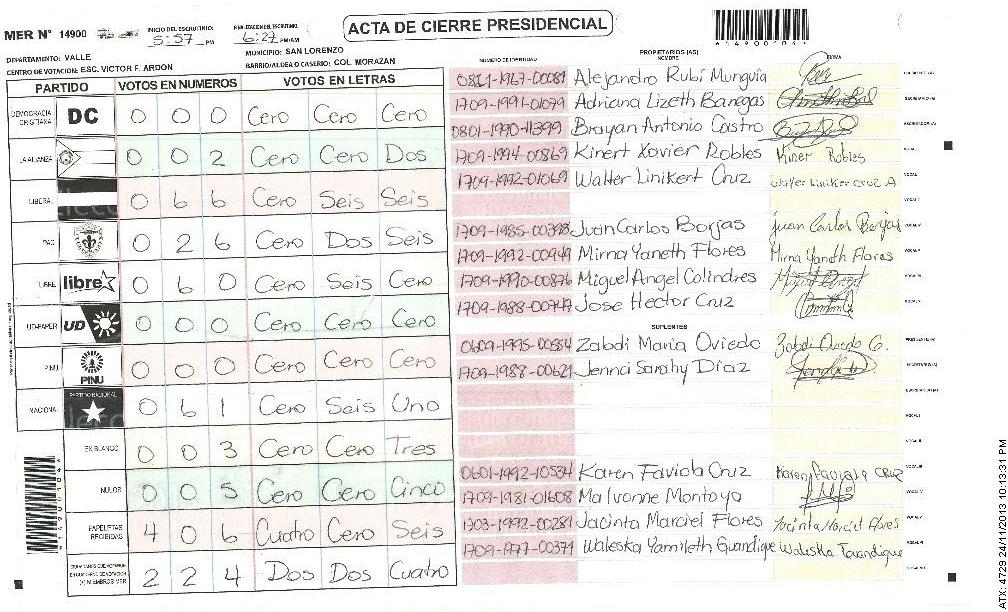 ACTA DE CIERRE PRESIDENCIAL
MER N° 14900
INICIO DEL ESCRUTINIO:
5:57 PM
FINALIZACION DEL ESCRUTINIO:
6:27 PM/AM
*14900104*
DEPARTAMENTO: VALLE
MUNICIPIO: SAN LORENZO
CENTRO DE VOTACION: ESC. VICTOR F. ARDON
BARRIO/ALDEA O CASERIO: COL MORAZAN
PARTIDO VOTOS EN NUMEROS VOTOS EN LETRAS
DEMOCRACIA CRISTIANA DC 0 0 0 Cero Cero Cero
LA ALIANZA 0 0 2 Cero Cero Dos
LIBERAL 0 6 6 Cero Seis Seis
PAC 0 2 6 Cero Dos Seis
LIBRE libre 0 6 0 Cero Seis Cero
UD-FAPER UD 0 0 0 Cero Cero Cero
PINU PINU 0 0 0 Cero Cero Cero
NACIONAL PARTIDO NACIONAL 0 6 1 Cero Seis Uno
EN BLANCO 0 0 3 Cero Cero Tres
NULOS 0 0 5 Cero Cero Cinco
PAPELETAS RECIBIDAS 4 0 6 Cuatro Cero Seis
CIUDADANOS QUE VOTARON
(+) MIEMBROS MER 2 2 4 Dos Dos Cuatro
PROPIETARIOS (AS)
NUMERO DE IDENTIDAD NOMBRE FIRMA
0811-1967-00081 Alejandro Rubí Munguia
1709-1991-01079 Adriana Lizeth Banegas SECRETARIO (A)
0801-1990-11399 Brayan Antonio Castro ESCRUTADOR (A)
1709-1994-00869 Kinert Xavier Robles Kiner Robles VOCAL I
1709-1992-01069 Walter Linikert Cruz Walter Liniker Cruz A
1709-1985-00398 Juan Carlos Borjas Juan Carlos Borjas
1709-1992-00949 Mirna Yaneth Flores Mirna Yaneth Flores
1709-1990-00876 Miguel Angel Colindres
1709-1988-00747 Jose Hector Cruz
SUPLENTES
0609-1995-00554 Zabdi Maria Oviedo Zabdi Oviedo G. PRESIDENTE (A)
1709-1988-00621 Jenni Sarahy Díaz SECRETARIO (A)
ESCRUTADOR (A)
0601-1992-10534 Karen Faviola Cruz
1709-1981-01608 Ma Ivonne Montoya
1703-1992-00281 Jacinta Marciel Flores Jacinta Marciel Flores
1709-1977-00371 Waleska Yamileth Guandique Waleska
*14900104*
ATX: 4729 24/11/2013 10:13:31 PM